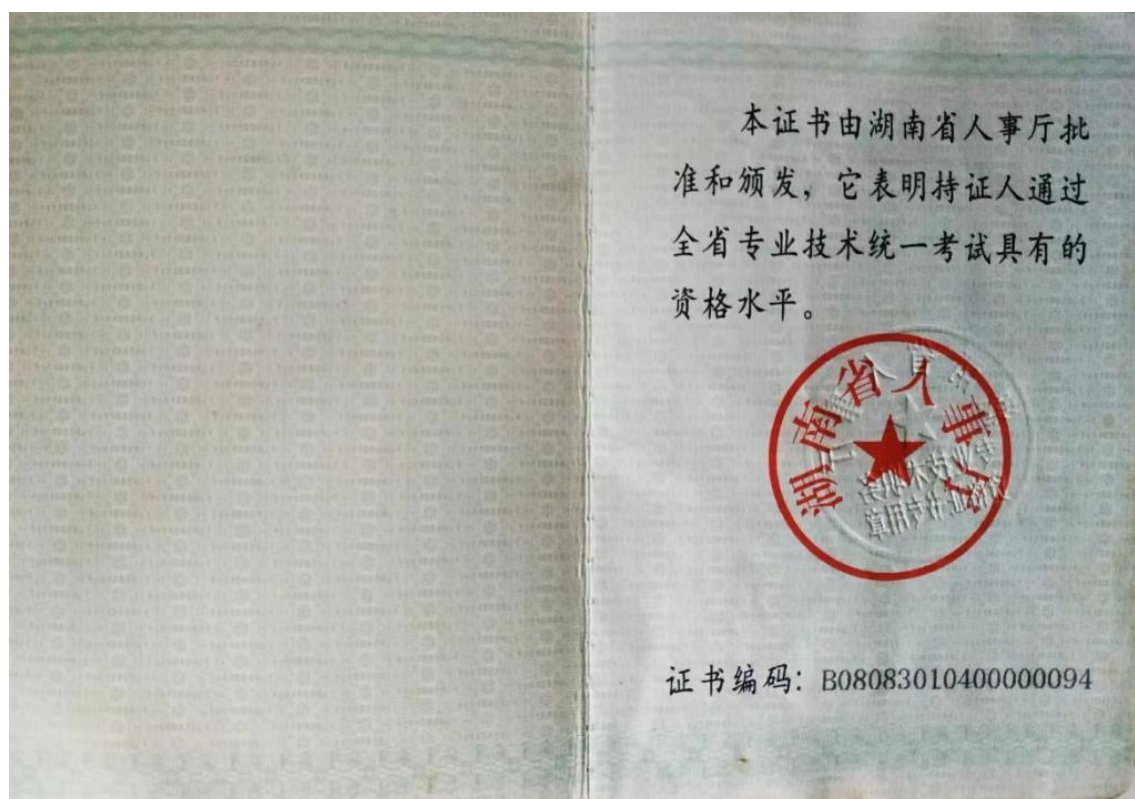 本证书由湖南省人事厅批
准和颁发，它表明持证人通过
全省专业技术统一考试具有的
资格水平。
湖南省人事厅
证书编码：B08083010400000094